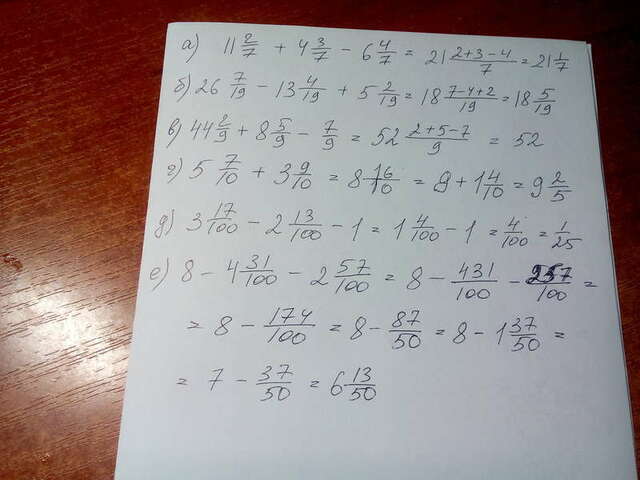 а) 11 2/7 + 4 3/7 - 6 4/7 = 21 (2+3-4)/7 = 21 1/7
б) 26 7/19 - 13 4/19 + 5 2/19 = 18 (7-4+2)/19 = 18 5/19
в) 44 2/9 + 8 5/9 - 7/9 = 52 (2+5-7)/9 = 52
г) 5 7/10 + 3 9/10 = 8 16/10 = 8 + 1 4/10 = 9 2/5
д) 3 17/100 - 2 13/100 - 1 = 1 4/100 - 1 = 4/100 = 1/25
е) 8 - 4 31/100 - 2 57/100 = 8 - 431/100 - 257/100 =
= 8 - 174/100 = 8 - 87/50 = 8 - 1 37/50 =
= 7 - 37/50 = 6 13/50